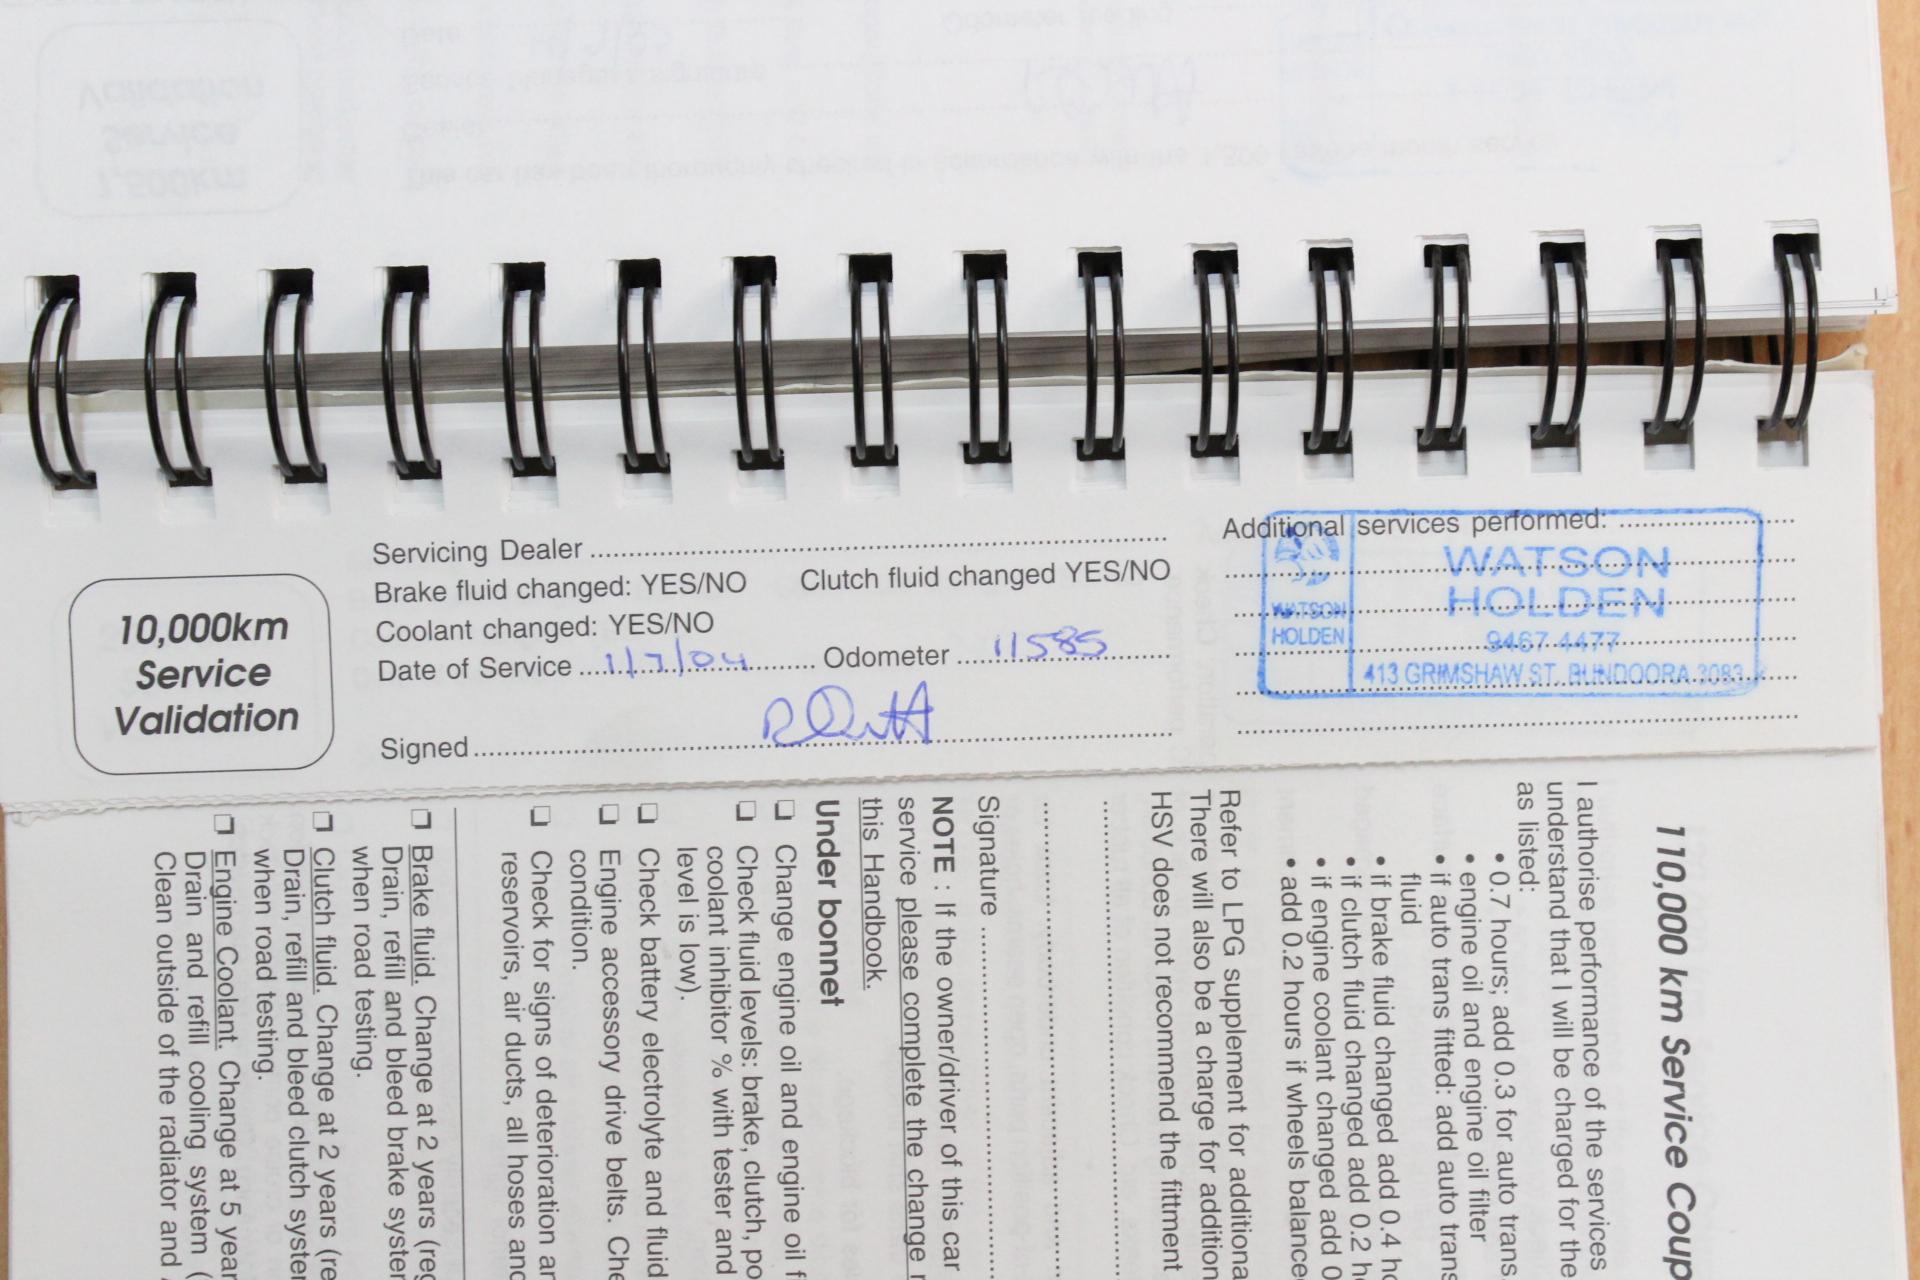 10,000km
Service
Validation
Servicing Dealer
Brake fluid changed: YES/NO Clutch fluid changed YES/NO
Coolant changed: YES/NO
Date of Service 1/7/04 Odometer 11585
Signed
Additional services performed:
WATSON
HOLDEN
WATSON
HOLDEN
9467 4477
413 GRIMSHAW ST. BUNDOORA 3083
110,000 km Service Coup
I authorise performance of the services
understand that I will be charged for the
as listed:
• 0.7 hours; add 0.3 for auto trans
• engine oil and engine oil filter
• if auto trans fitted: add auto trans
fluid
• if brake fluid changed add 0.4 ho
• if clutch fluid changed add 0.2 h
• if engine coolant changed add 0
• add 0.2 hours if wheels balance
Refer to LPG supplement for additiona
There will also be a charge for addition
HSV does not recommend the fitment
Signature
NOTE : If the owner/driver of this car
service please complete the change r
this Handbook.
Under bonnet
❑ Change engine oil and engine oil f
❑ Check fluid levels: brake, clutch, po
coolant inhibitor % with tester and
level is low).
❑ Check battery electrolyte and fluid
❑ Engine accessory drive belts. Che
condition.
❑ Check for signs of deterioration an
reservoirs, air ducts, all hoses and
❑ Brake fluid. Change at 2 years (reg
Drain, refill and bleed brake syster
when road testing.
❑ Clutch fluid. Change at 2 years (re
Drain, refill and bleed clutch syster
when road testing.
❑ Engine Coolant. Change at 5 year
Drain and refill cooling system (
Clean outside of the radiator and